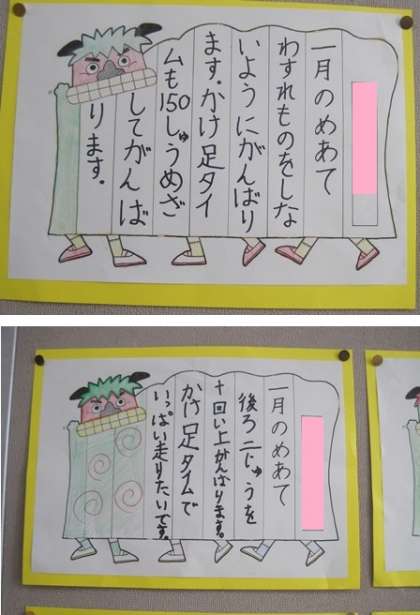 一月のめあて
わすれものをしな
いようにがんばり
ます。かけ足タイ
ムも150しゅうめざ
してがんば
ります。
一月のめあて
後ろ二じゅうを
十回い上がんばります。
かけ足タイムで
いっぱい走りたいです。